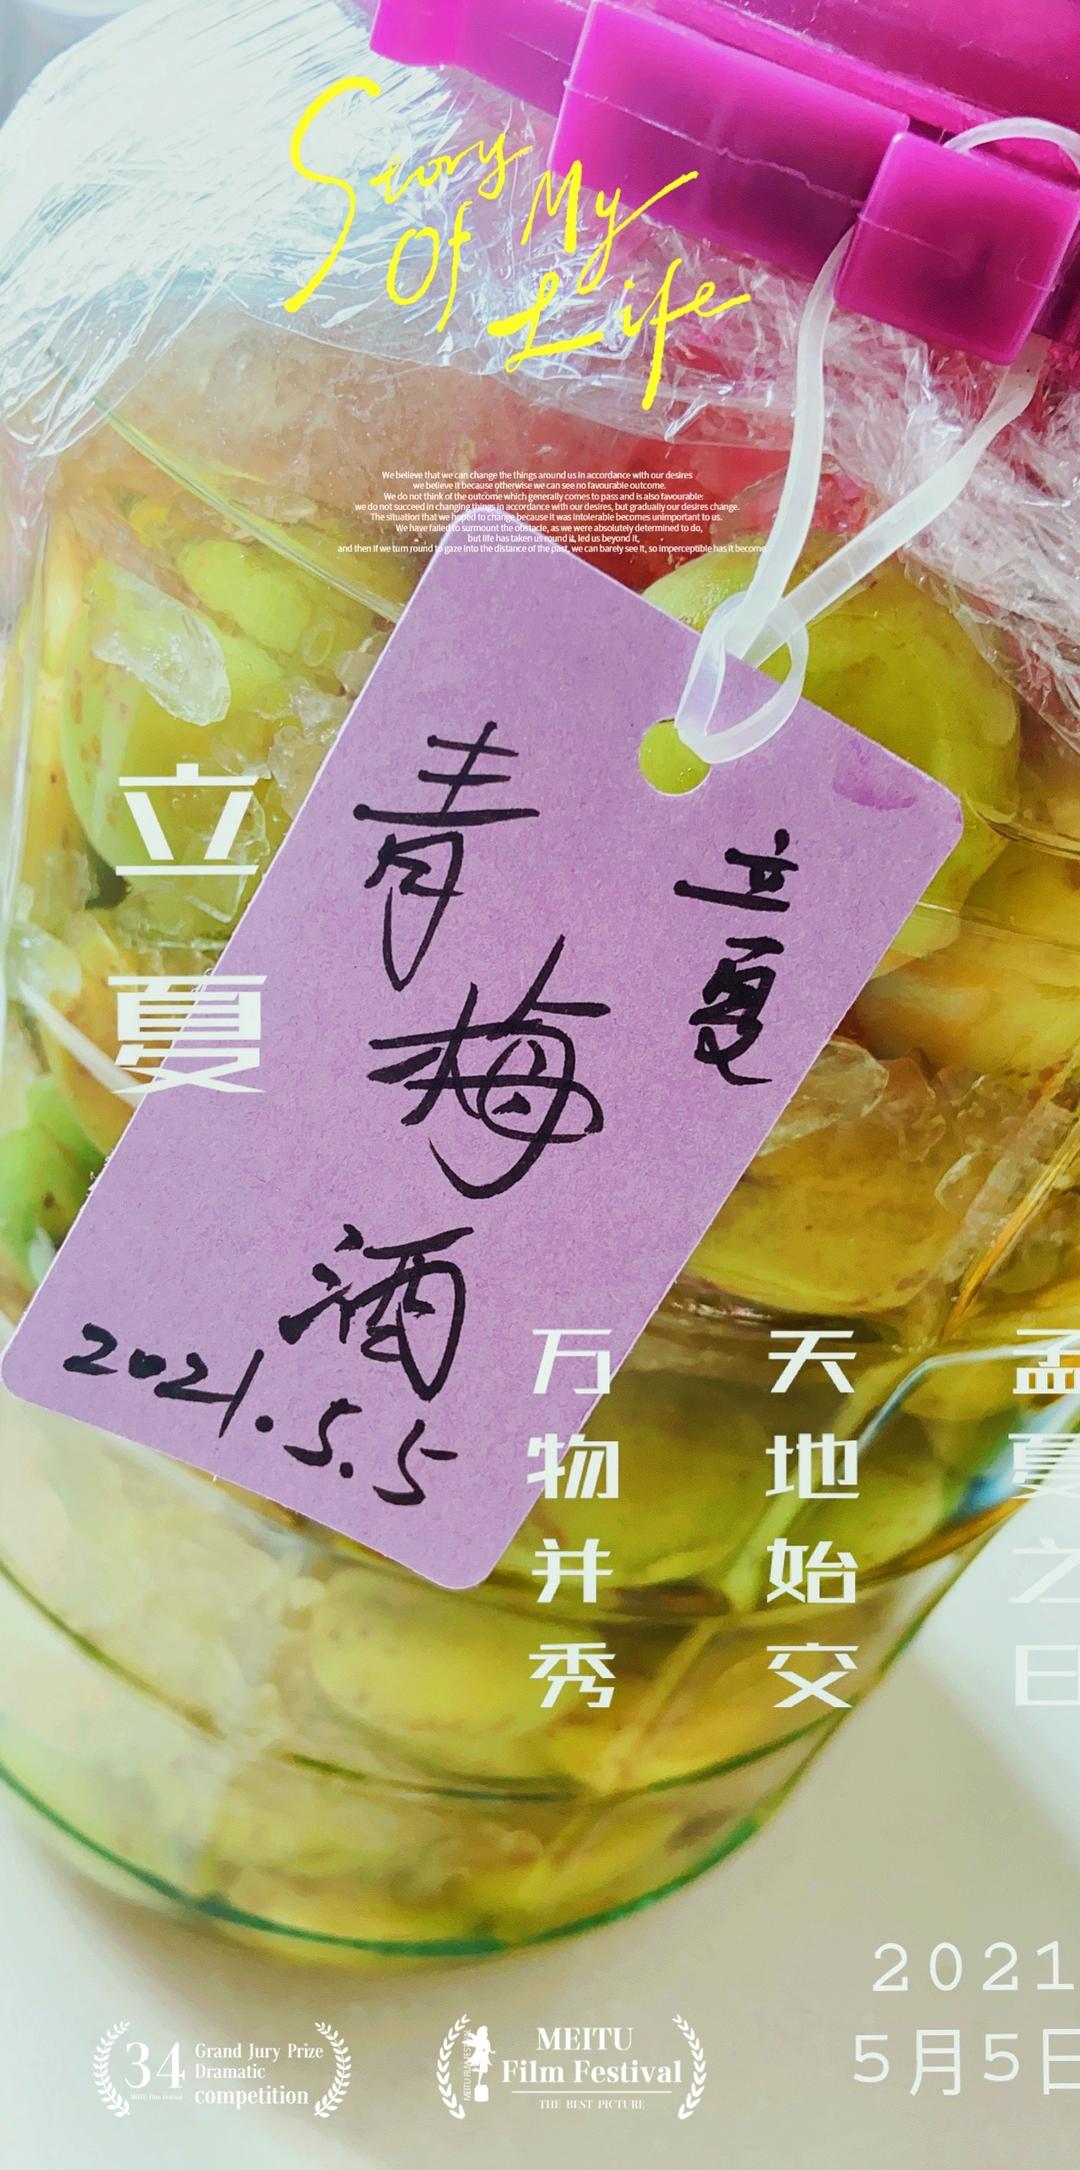 Story
Of My
Life
We believe that we can change the things around us in accordance with our desires
we believe it because otherwise we can see no favourable outcome.
We do not think of the outcome which generally comes to pass and is also favourable:
we do not succeed in changing things in accordance with our desires, but gradually our desires change.
The situation that we hoped to change because it was intolerable becomes unimportant to us.
We have failed to surmount the obstacle, as we were absolutely determined to do,
but life has taken us round it, led us beyond it,
and then if we turn round to gaze into the distance of the past, we can barely see it, so imperceptible has it become.
立夏
立夏
青梅酒
2021.5.5
孟夏之日
天地始交
万物并秀
2021
5月5日
34
MEITU Film Festival
Grand Jury Prize
Dramatic
competition
MEITU
Film Festival
THE BEST PICTURE